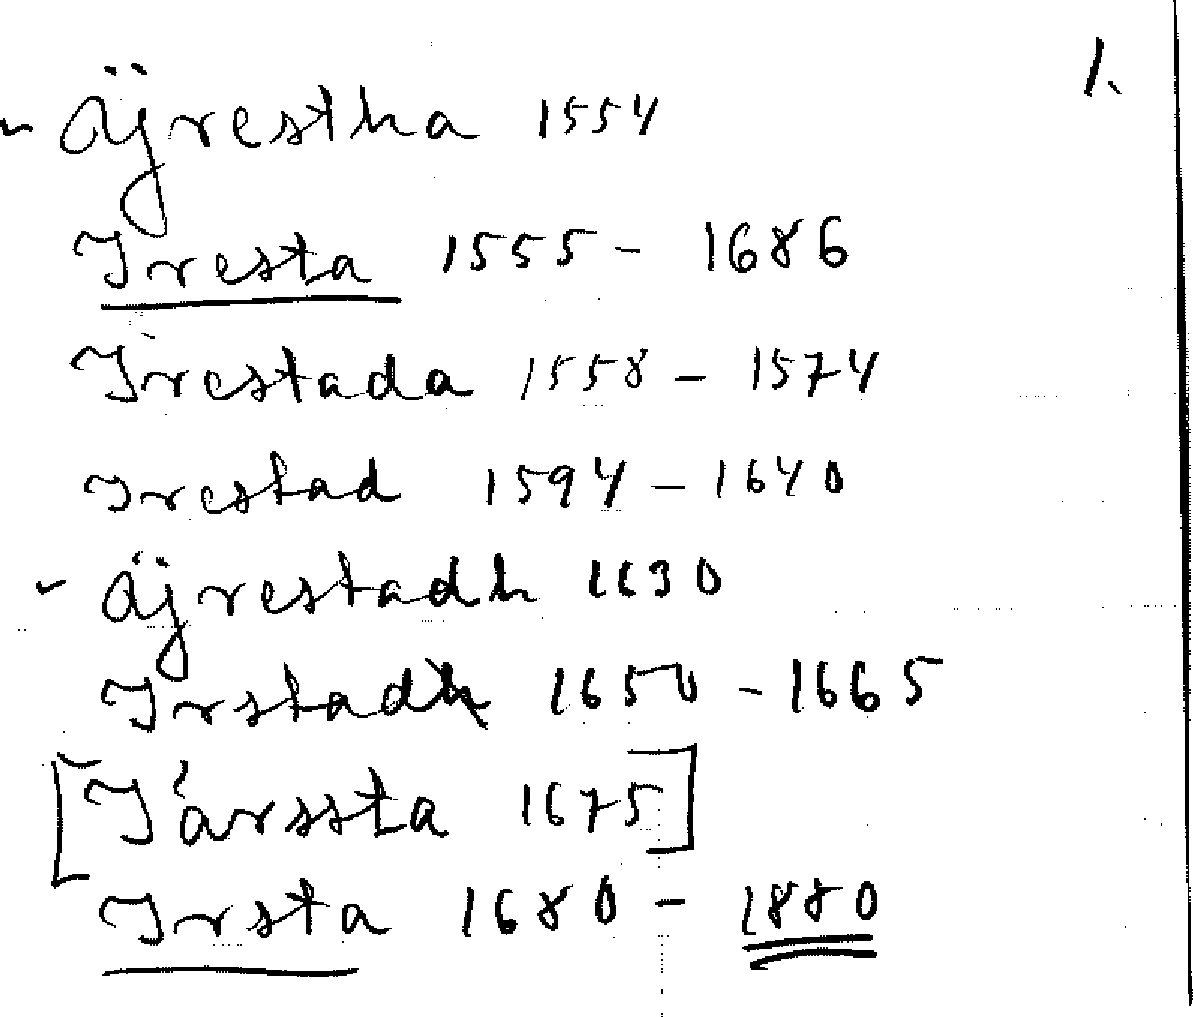 1.
Äÿrestha 1554
Iresta 1555 - 1686
Irestada 1558 - 1574
Irestad 1594 - 1640
Äÿrestadh 1630
Irstadh 1650 - 1665
[Iårssta 1675]
Irsta 1680 - 1880